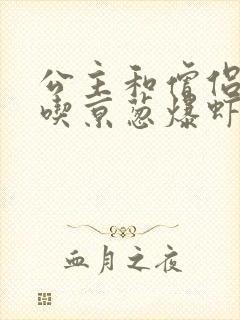 公主和僧侣
喫京葱爆虾
血月之夜